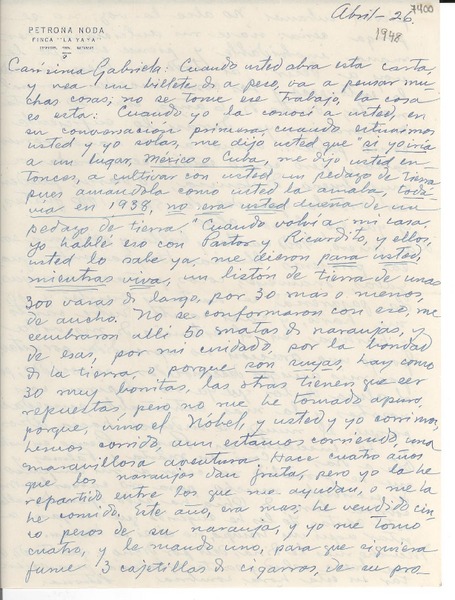 PETRONA NODA
FINCA "LA YAYA"
Abril-26.
7400
1948
Carísima Gabriela: Cuando usted abra esta carta,
y vea un billete de a peso, va a pensar mu-
chas cosas; no se tome ese trabajo, la cosa
es esta: Cuando yo la conocí a usted, en
su conversacion primera, cuando estuvimos
usted y yo solas, me dijo usted que "si yo iría
a un lugar, México o Cuba, me dijo usted en-
tonces, a cultivar con usted un pedazo de tierra
pues amandola como usted la amaba, toda-
vía en 1938, no era usted dueña de un
pedazo de tierra." Cuando volví a mi casa,
yo hablé eso con Pastor y Ricardito, y ellos,
usted lo sabe ya, me dieron para usted
mientras viva, un listón de tierra de unas
300 varas de largo, por 30 mas o menos,
de ancho. No se conformaron con eso, me
sembraron allí 50 matas de naranjas, y
de esas, por mi cuidado, por la bondad
de la tierra, o porque son suyas, hay como
30 muy bonitas, las otras tienen que ser
repuestas, pero no me he tomado apuro,
porque, vino el Nóbel, y usted y yo corrimos,
hemos corrido, aun estamos corriendo, una
maravillosa aventura. Hace cuatro años
que los naranjos dan fruta, pero yo la he
repartido entre los que me ayudan, o me la
he comido. Este año, era mas; he vendido cin-
co pesos de su naranja, y yo me tomo
cuatro, y le mando uno, para que siquiera
fume 3 cajetillas de cigarros, de su pro-